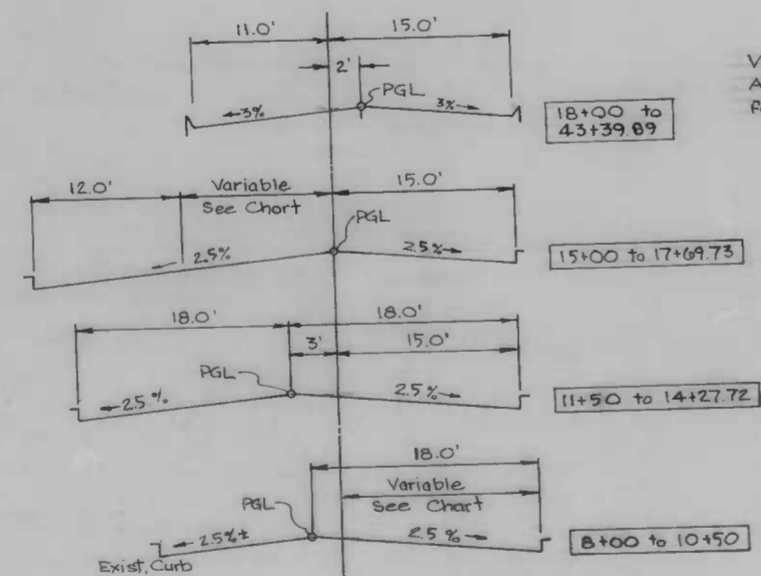 11.0'
15.0'
2'
PGL
3%
3%
18+00 to
43+39.89
12.0'
Variable
See Chart
15.0'
PGL
2.5%
2.5%
15+00 to 17+69.73
18.0'
18.0'
3'
15.0'
PGL
2.5%
2.5%
11+50 to 14+27.72
18.0'
Variable
See Chart
PGL
2.5%±
2.5%
8+00 to 10+50
Exist. Curb